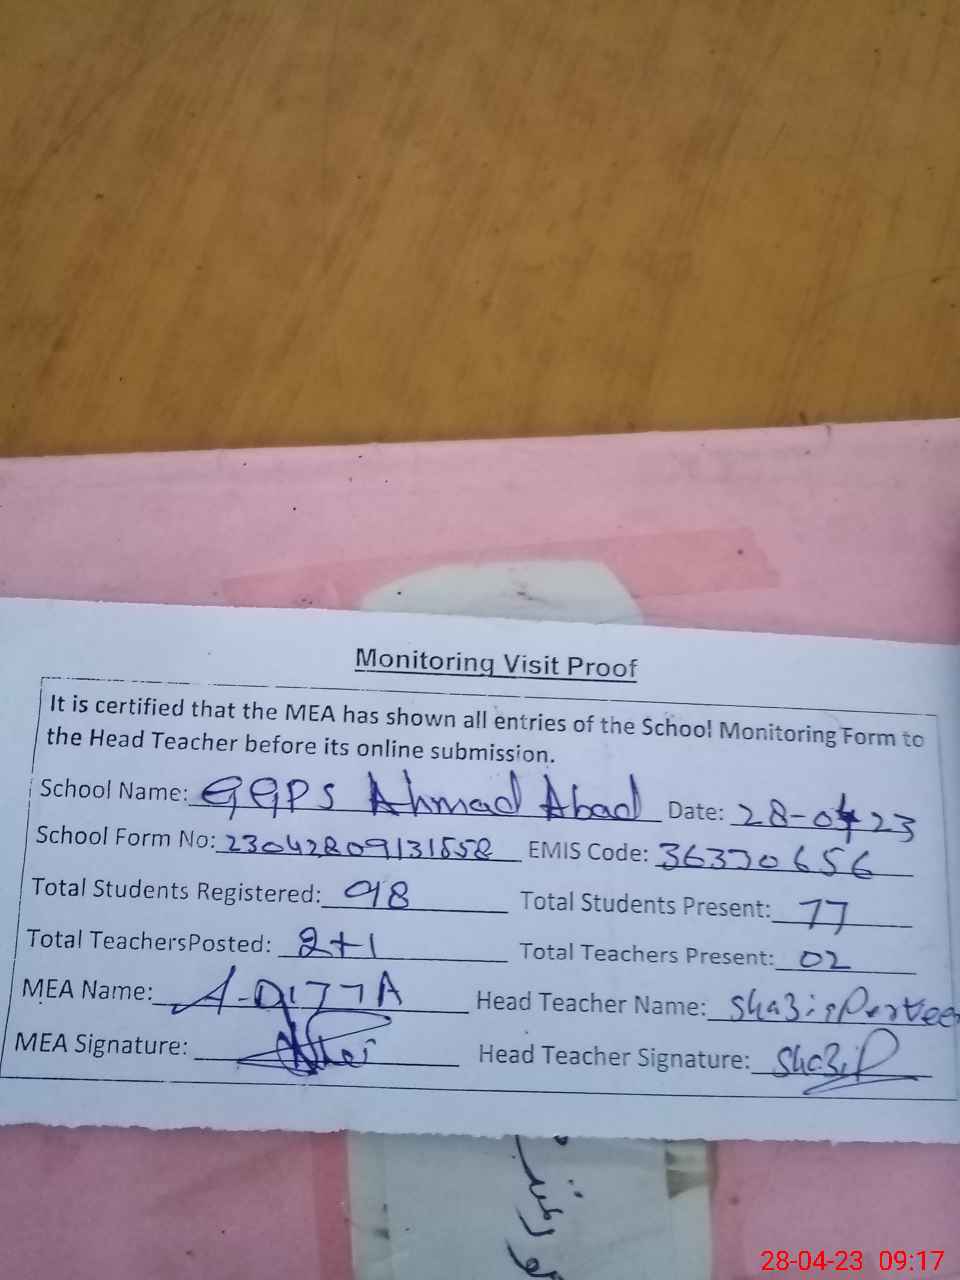 Monitoring Visit Proof
It is certified that the MEA has shown all entries of the School Monitoring Form to
the Head Teacher before its online submission.
School Name: GGPS Ahmad Abad Date: 28-04-23
School Form No: 23042809131558 EMIS Code: 36330656
Total Students Registered: 98 Total Students Present: 77
Total TeachersPosted: 2+1 Total Teachers Present: 02
MEA Name: Head Teacher Name: Shazia Parveen
MEA Signature: Head Teacher Signature:
28-04-23 09:17